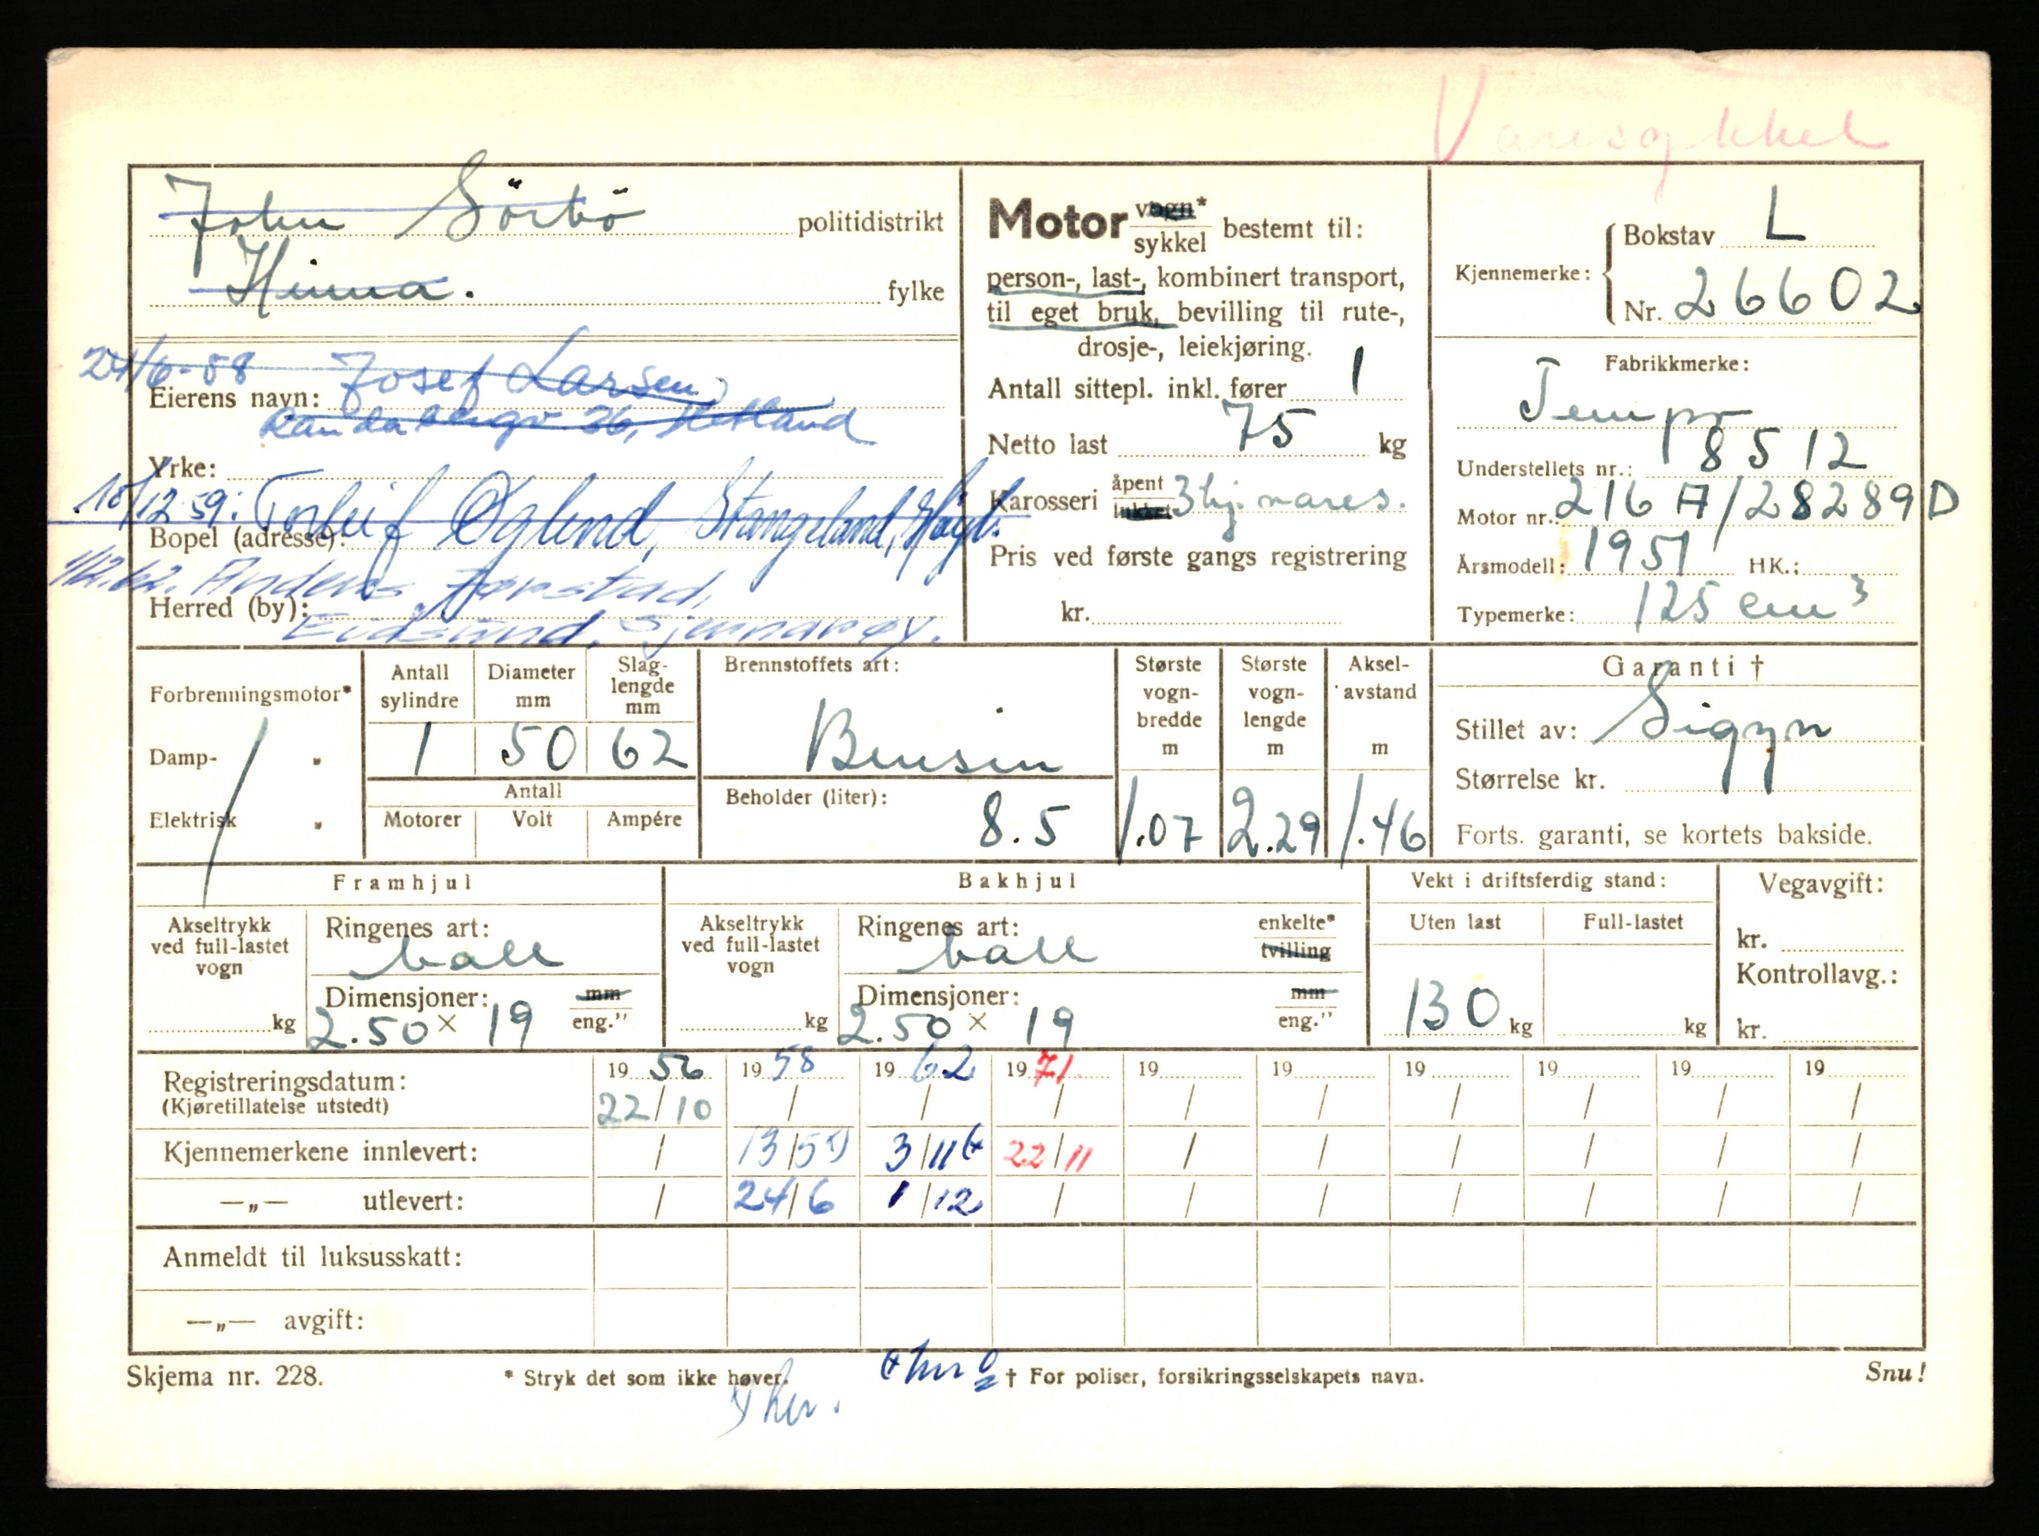 Varesykkel
John Sörbö politidistrikt
Hinna. fylke
24/6-58 Josef Larsen
Eierens navn:
Randabergv 26, Hetland
Yrke:
15/12 59: Torleif Øglend, Stangeland, Høyl.
Bopel (adresse):
1/12.62. Anders Jørstad,
Herred (by):
Eidssund, Sjernarøy.
Motor vogn*
sykkel bestemt til:
person-, last-, kombinert transport,
til eget bruk, bevilling til rute-,
drosje-, leiekjøring.
Antall sittepl. inkl. fører 1
Netto last 75 kg
Karosseri åpent
lukket 3 hj. vares.
Pris ved første gangs registrering
kr.
Kjennemerke: Bokstav L
Nr. 26602
Fabrikkmerke:
Tempo
Understellets nr.: 18512
Motor nr.: 216 A/28289 D
Årsmodell: 1951 HK.:
Typemerke: 125 cm³
Forbrenningsmotor*
Damp- „
Elektrisk „
Antall sylindre Diameter mm Slag-lengde mm
1 50 62
Antall
Motorer Volt Ampére
Brennstoffets art:
Bensin
Beholder (liter):
8.5
Største vogn-bredde m
1.07
Største vogn-lengde m
2.29
Aksel-avstand m
1.46
Garanti †
Stillet av: Sigyn
Størrelse kr.
Forts. garanti, se kortets bakside.
Framhjul
Akseltrykk ved full-lastet vogn
kg
Ringenes art:
ball
Dimensjoner: mm
2.50 × 19 eng."
Bakhjul
Akseltrykk ved full-lastet vogn
kg
Ringenes art: enkelte*
ball tvilling
Dimensjoner: mm
2.50 × 19 eng."
Vekt i driftsferdig stand:
Uten last Full-lastet
130 kg kg
Vegavgift:
kr.
Kontrollavg.:
kr.
Registreringsdatum: 19 56 19 58 19 62 19 71 19 19 19 19 19 19
(Kjøretillatelse utstedt) 22/10 / / / / / / / / /
Kjennemerkene innlevert: / 13/5 3/11 22/11 / / / / / /
—„— utlevert: / 24/6 1/12 / / / / / / /
Anmeldt til luksusskatt:
—„— avgift:
Skjema nr. 228. * Stryk det som ikke høver. † For poliser, forsikringsselskapets navn. Snu!